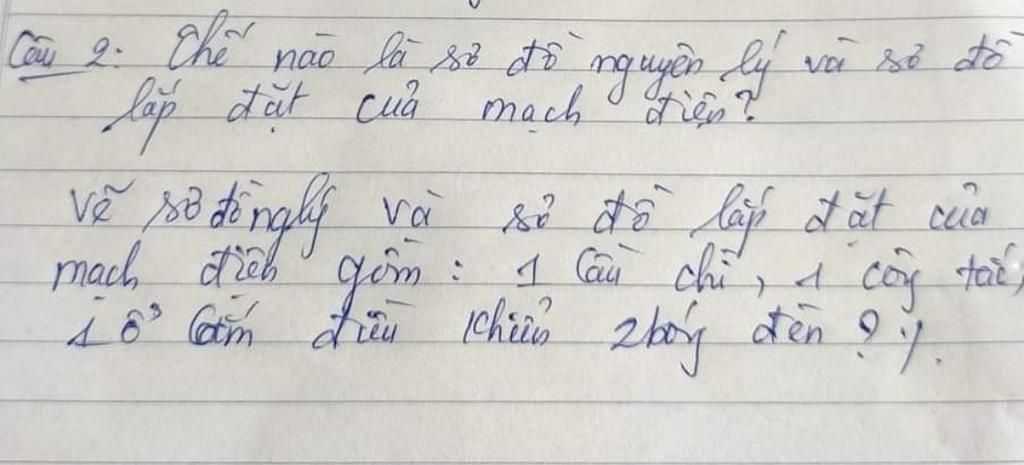 Câu 2: Thế nào là sơ đồ nguyên lý và sơ đồ
lắp đặt của mạch điện?
Vẽ sơ đồ nglý và sơ đồ lắp đặt của
mạch điện gồm: 1 Cầu chì, 1 công tắc,
1 ổ Cắm điều khiển 2 bóng đèn ?/.